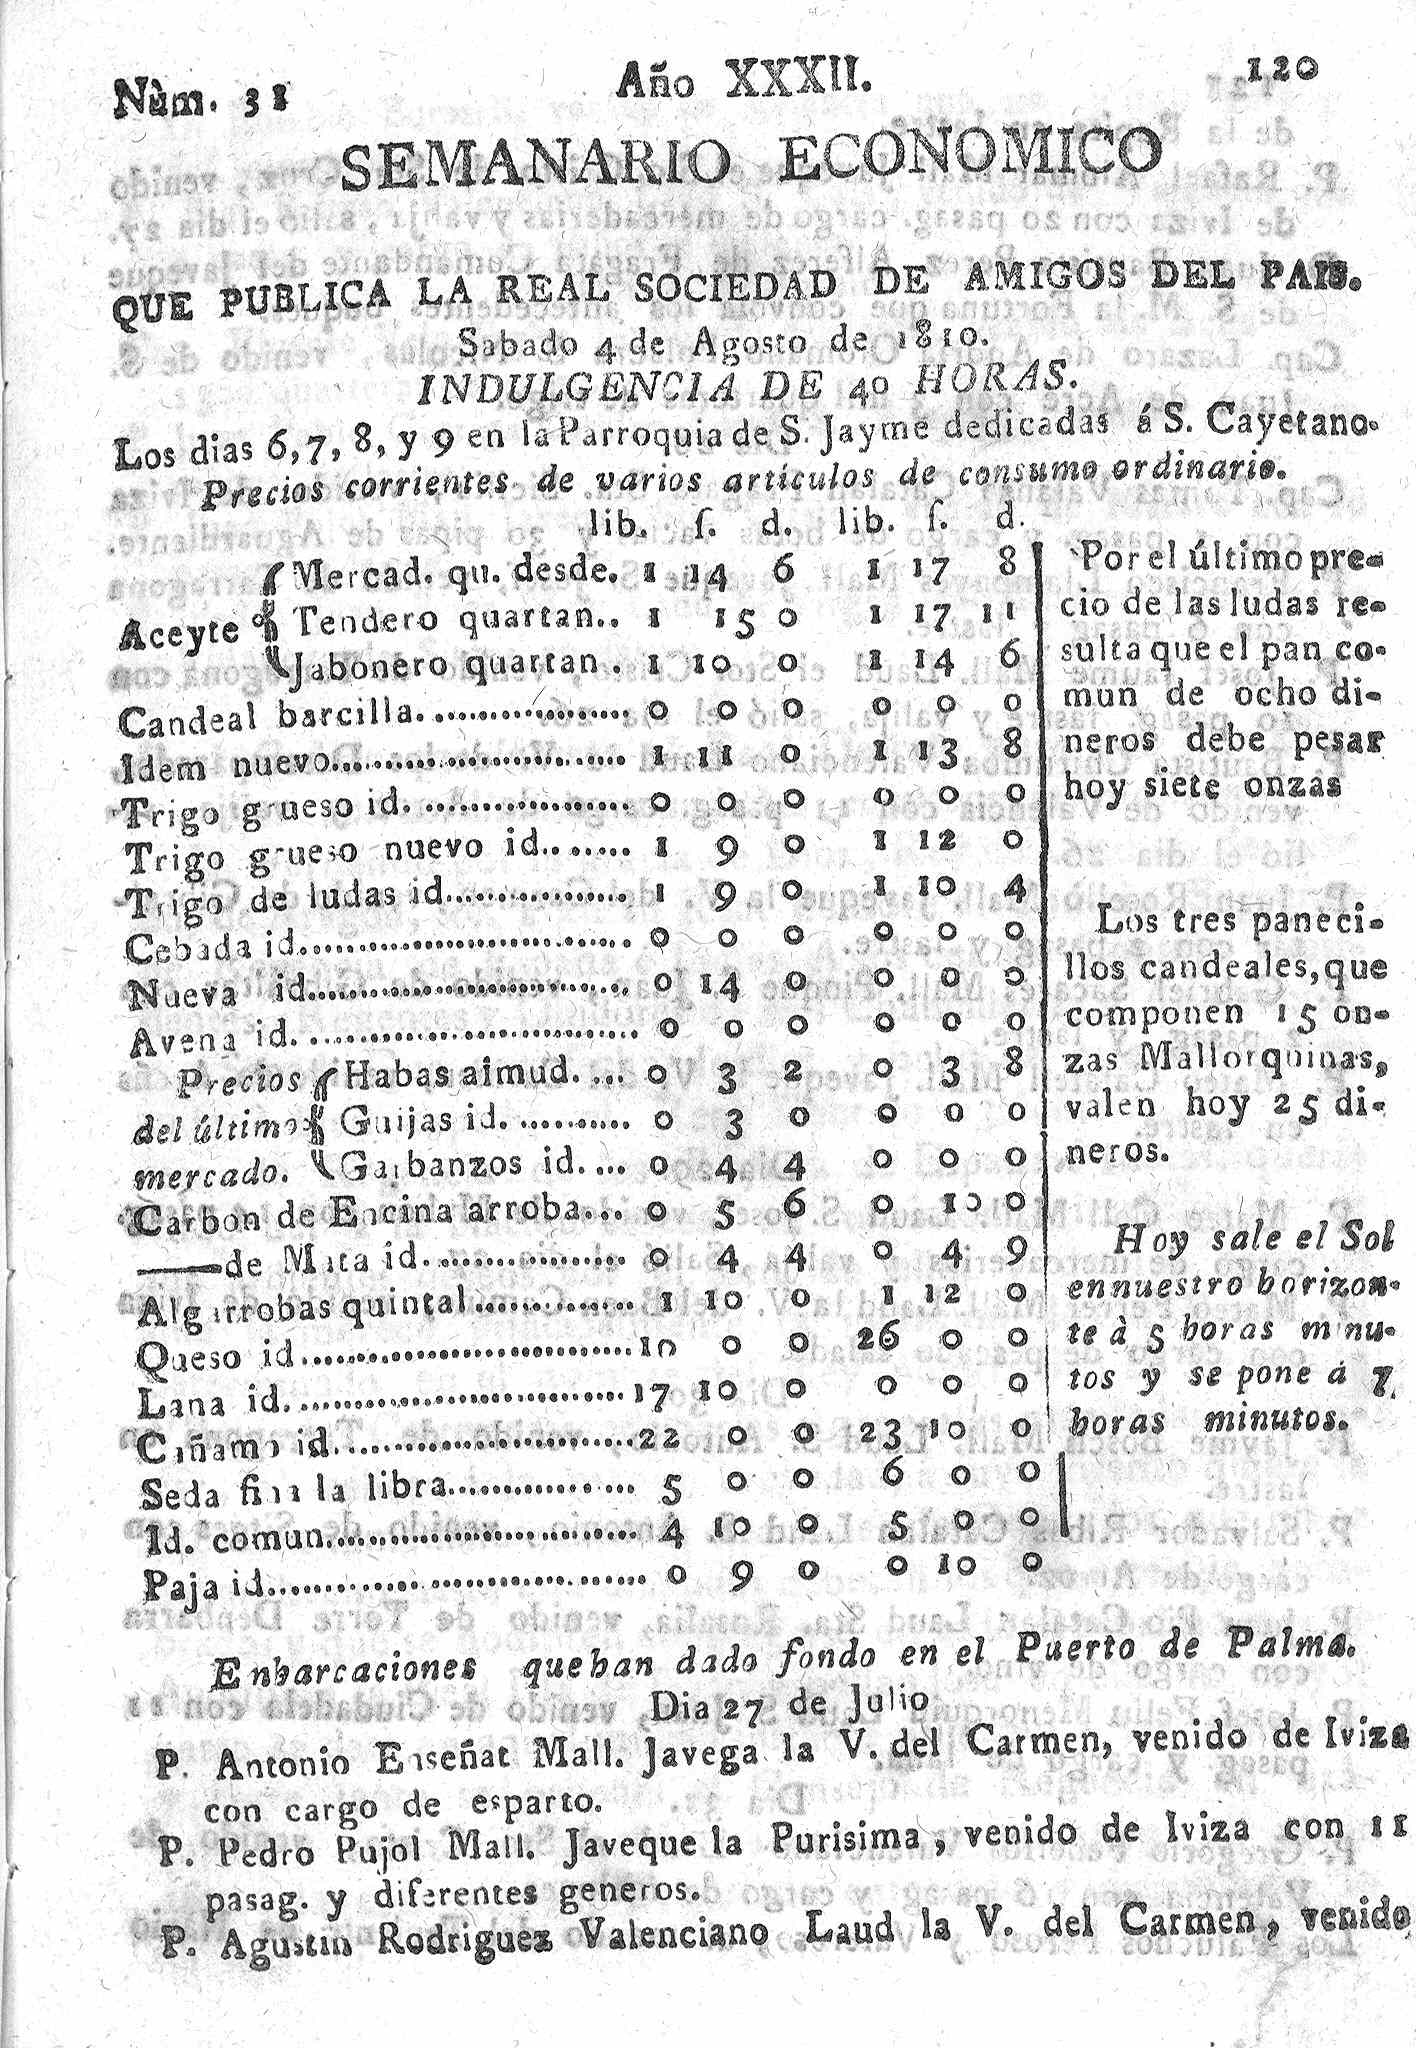 Nùm. 31
Año XXXII.
120
SEMANARIO ECONOMICO
QUE PUBLICA LA REAL SOCIEDAD DE AMIGOS DEL PAIS.
Sabado 4 de Agosto de 1810.
INDULGENCIA DE 40 HORAS.
Los dias 6, 7, 8, y 9 en la Parroquia de S. Jayme dedicadas á S. Cayetano.
Precios corrientes de varios artículos de consumo ordinario.
lib. ſ. d. lib. ſ. d.
Mercad. qu. desde. 1 14 6 1 17 8
Aceyte Tendero quartan.. 1 15 0 1 17 11
Jabonero quartan . 1 10 0 1 14 6
Candeal barcilla. 0 0 0 0 0 0
Idem nuevo. 1 11 0 1 13 8
Trigo grueso id. 0 0 0 0 0 0
Trigo grueso nuevo id. 1 9 0 1 12 0
Trigo de ludas id. 1 9 0 1 10 4
Cebada id. 0 0 0 0 0 0
Nueva id. 0 14 0 0 0 0
Avena id. 0 0 0 0 0 0
Precios Habas almud. 0 3 2 0 3 8
del último Guijas id. 0 3 0 0 0 0
mercado. Garbanzos id. 0 4 4 0 0 0
Carbon de Encina arroba. 0 5 6 0 10 0
—de Mata id. 0 4 4 0 4 9
Algarrobas quintal 1 10 0 1 12 0
Queso id. 10 0 0 26 0 0
Lana id. 17 10 0 0 0 0
Cañamo id. 22 0 0 23 10 0
Seda fina la libra. 5 0 0 6 0 0
Id. comun. 4 10 0 5 0 0
Paja id. 0 9 0 0 10 0
Por el último pre-
cio de las ludas re-
sulta que el pan co-
mun de ocho di-
neros debe pesar
hoy siete onzas
Los tres paneci-
llos candeales, que
componen 15 on-
zas Mallorquinas,
valen hoy 25 di-
neros.
Hoy sale el Sol
en nuestro horizon-
te à 5 horas minu-
tos y se pone á 7
horas minutos.
Enbarcaciones que han dado fondo en el Puerto de Palma.
Dia 27 de Julio
P. Antonio Enseñat Mall. Javega la V. del Carmen, venido de Iviza
con cargo de esparto.
P. Pedro Pujol Mall. Javeque la Purisima, venido de Iviza con 11
pasag. y diferentes generos.
P. Agustin Rodriguez Valenciano Laud la V. del Carmen, venido